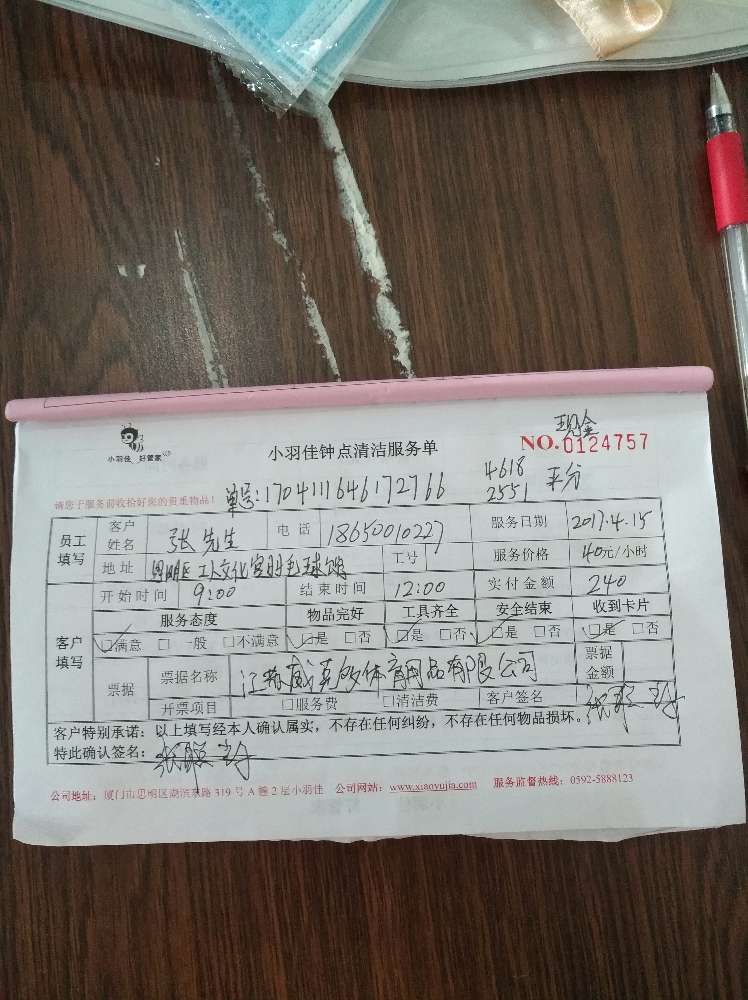 现金
小羽佳 好管家
小羽佳钟点清洁服务单
NO.0124757
请您于服务前收检好您的贵重物品!
单号:170411646172766
4618
2551 平分
员工填写 客户姓名 张先生 电话 18650010227 服务日期 2017.4.15
地址 思明区工人文化宫羽毛球馆 工号 服务价格 40元/小时
开始时间 9:00 结束时间 12:00 实付金额 240
客户填写 服务态度 物品完好 工具齐全 安全结束 收到卡片
☑满意 □一般 □不满意 ☑是 □否 ☑是 □否 ☑是 □否 ☑是 □否
票据 票据名称 江苏威克多体育用品有限公司 票据金额
开票项目 □服务费 □清洁费 客户签名
客户特别承诺:以上填写经本人确认属实,不存在任何纠纷,不存在任何物品损坏。
特此确认签名:
公司地址:厦门市思明区湖滨东路319号A幢2层小羽佳 公司网站:www.xiaoyujia.com 服务监督热线:0592-5888123